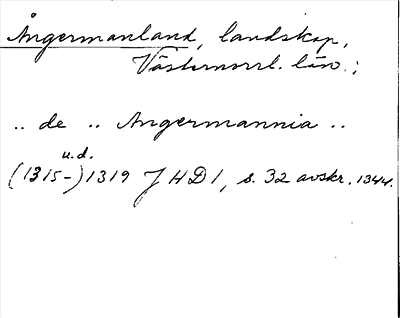 Ångermanland, landskap,
Västernorrl. län.;
.. de .. Angermannia ..
u.d.
(1315-)1319 JHD1, s. 32 avskr. 1344.